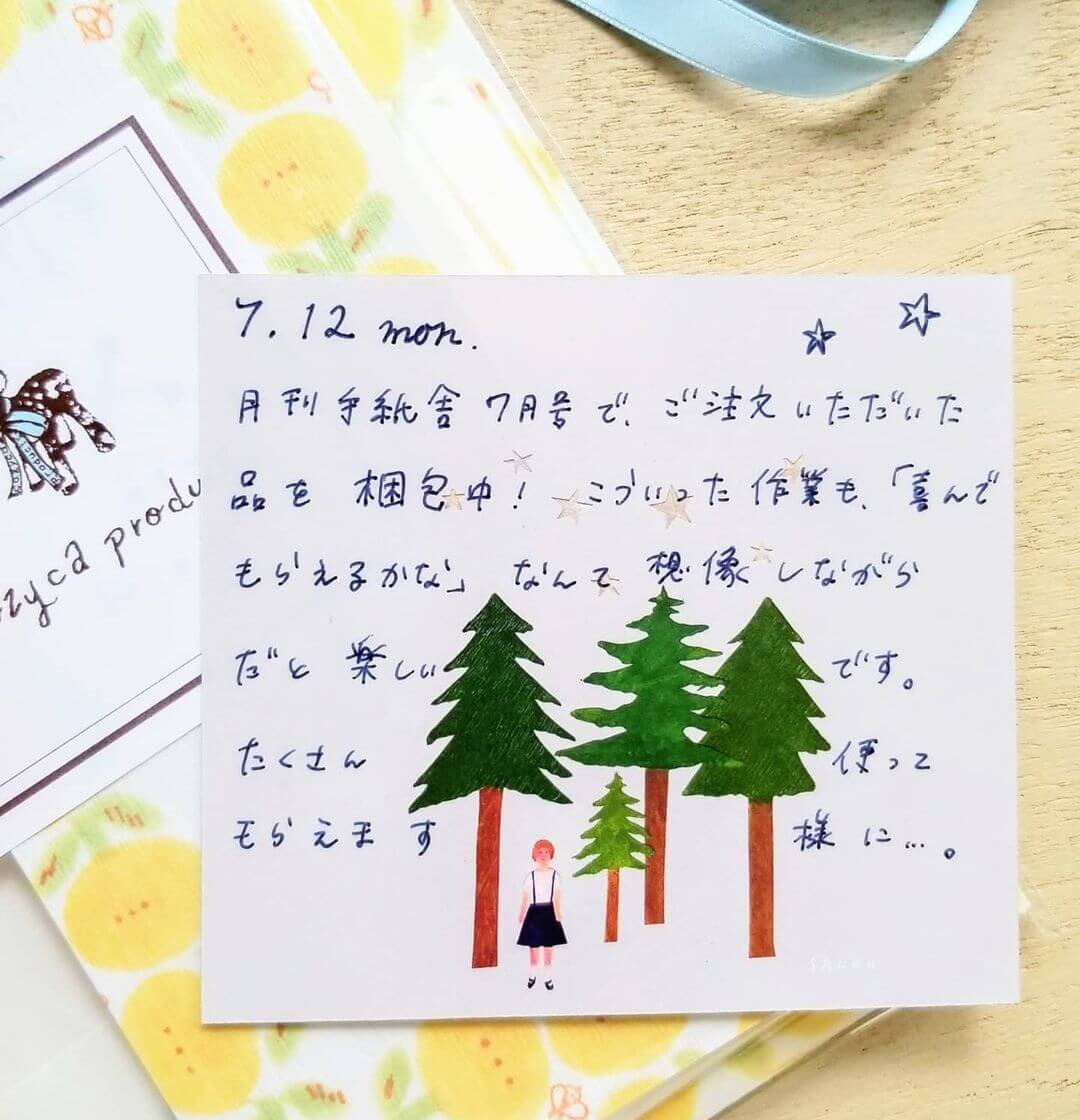 7.12 mon.
月刊手紙舎 7月号で、ご注文いただいた
品を 梱包中! こういった作業も、「喜んで
もらえるかな」 なんて 想像しながら
だと 楽しい です。
たくさん 使って
もらえます 様に…。
zyca produ